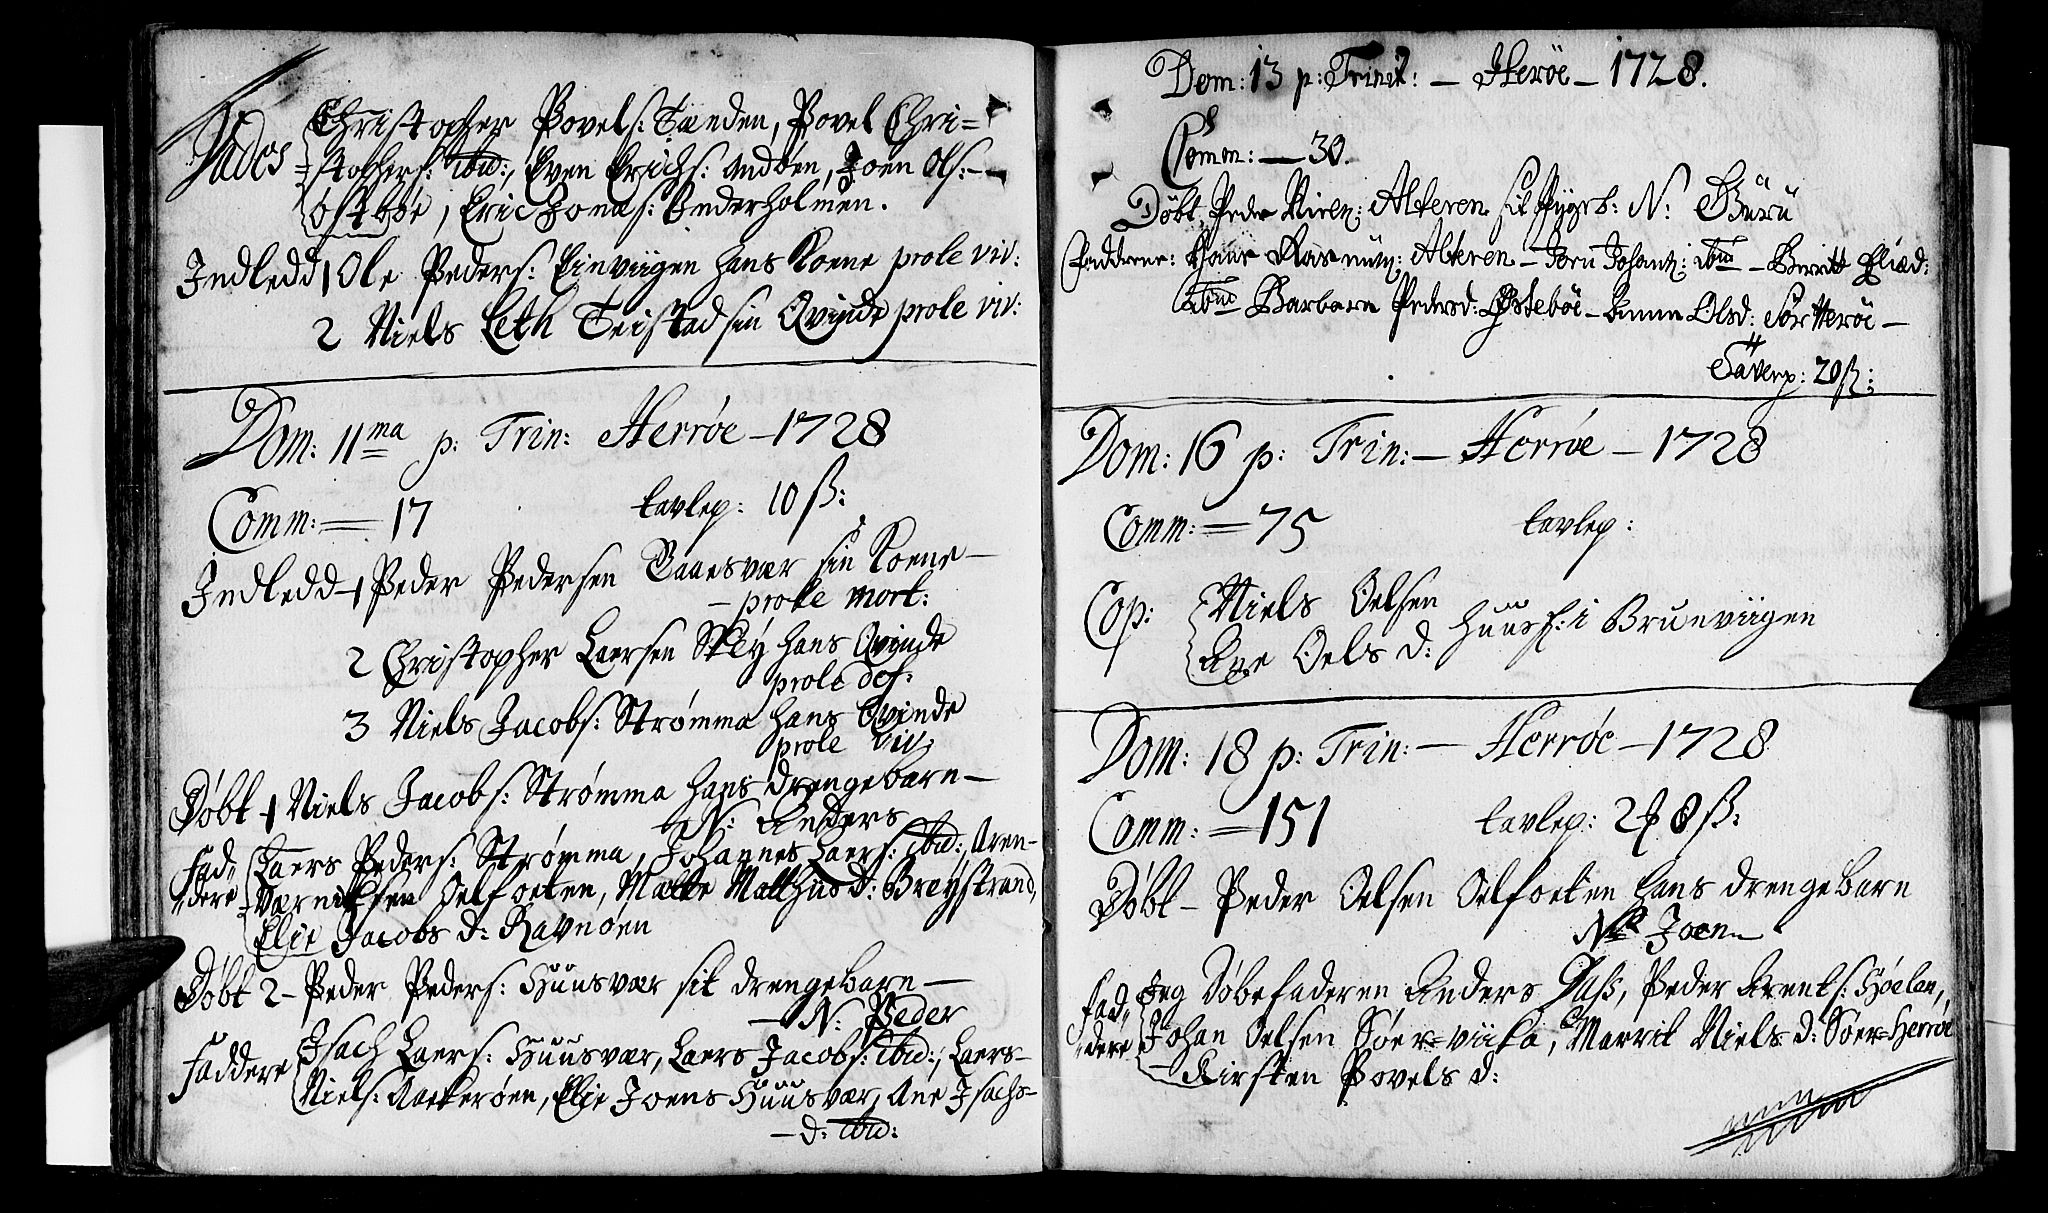 Christopher Povels: Tanden, Povel Chri=
Fades =stophers: ibid:, Even Erichs: Andøen, Joen Ols:
Østbøe, Eric Jonæs: Inderholmen.
Indledd 1 Ole Peders: Einviigen hans Kone prole viv:
2 Niels Leth Teistad sin Qvinde prole viv:
Dom: 11ma p: Trin: Herrøe – 1728
Comm: = 17 tavlep: 10 ß:
Indledd – 1 Peder Pedersen Baaesvær sin Kone –
– prole mort:
2 Christopher Laersen Skey hans Qvinde
prole def:
3 Niels Jacobs: Strømma hans Qvinde
prole viv:
Døbt – 1 Niels Jacobs: Strømma hans drengebarn –
N: Anders
Fad= Laers Peders: Strømma, Johannes Laers: ibid:, Aren-
=dere Værnichsen Selfoeten, Malle Matthiis d: Breystrand,
Elie Jacobs d: Ravnøen
Døbt 2 – Peder Peders: Huusvær sit drengebarn –
– N: Peder
Faddere Isach Laers: Huusvær, Laers Jacobs: ibid:, Laers-
Niels: Aakerøen, Elie Joens Huusvær, Ane Isachs-
– d: ibid:
Dom: 13 p: Trinit: – Herøe – 1728.
Comm: – 30.
Døbt, Peder Niren: Alteren sit Pygeb: N: Guru
Faddrene: Hans Rasmuss: Alteren – Jon Johans: ibid – Berritt Eliæd:
ibid Barbara Pedersd: Østebøe – Anna Olsd: Sør Herøe –
Tavlep: 20 ß:
Dom: 16 p: Trin: – Herrøe – 1728
Comm: = 75 tavlep:
Cop: Niels Oelsen
Ane Oels d: huusf: i Brunviigen
Dom: 18 p: Trin: – Herrøe – 1728
Comm: = 151 tavlep: 2 8 ß:
Døbt – Peder Oelsen Selfoeten hans drengebarn
N: Joen
Fad= Jeg Døbefaderen Anders Dass, Peder Arents: Høelen,
=dere Johan Oelsen Søer=viika, Marrit Niels d: Søer=Herrøe
– Kirsten Povels d: